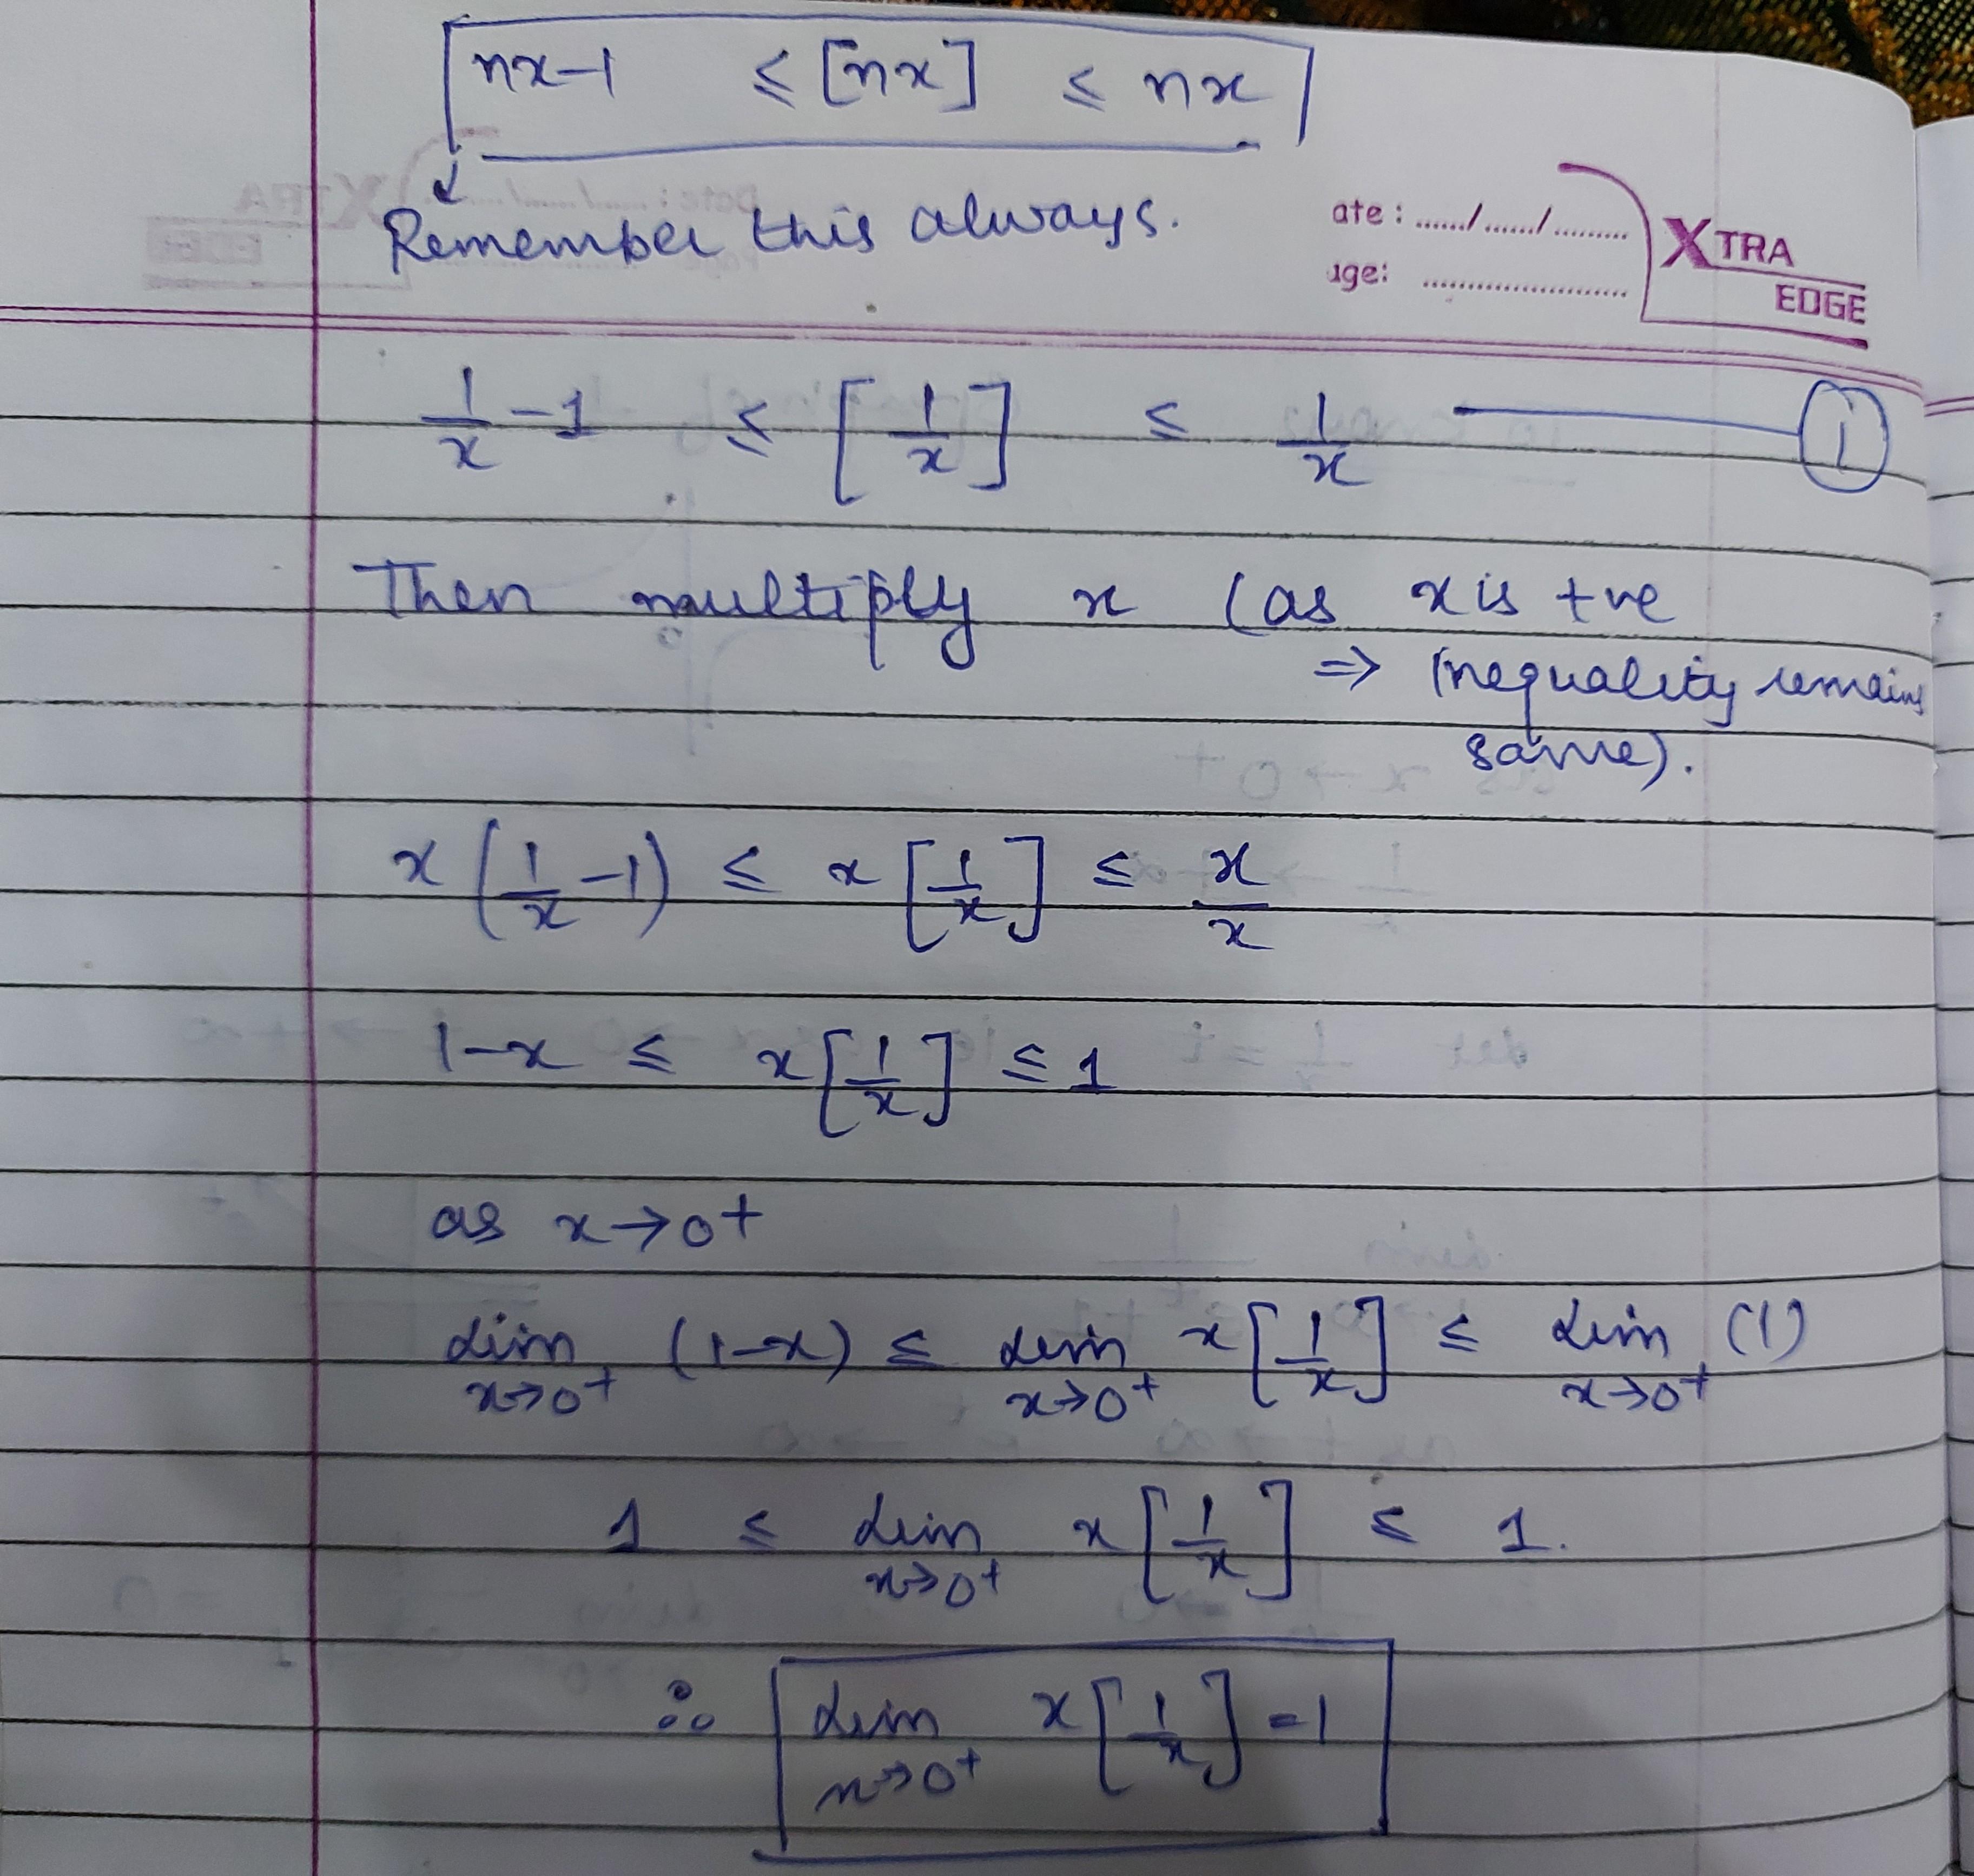 nx-1 ≤ [nx] ≤ nx
Remember this always.
ate : ....../....../.........
age: .......................
XTRA
EDGE
1/x - 1 ≤ [1/x] ≤ 1/x —— 1
Then multiply x (as x is +ve
⇒ inequality remains
same).
x(1/x - 1) ≤ x[1/x] ≤ x/x
1-x ≤ x[1/x] ≤ 1
as x→0+
Lim x→0+ (1-x) ≤ Lim x→0+ x[1/x] ≤ Lim x→0+ (1)
1 ≤ Lim x→0+ x[1/x] ≤ 1.
∴ Lim x→0+ x[1/x] = 1